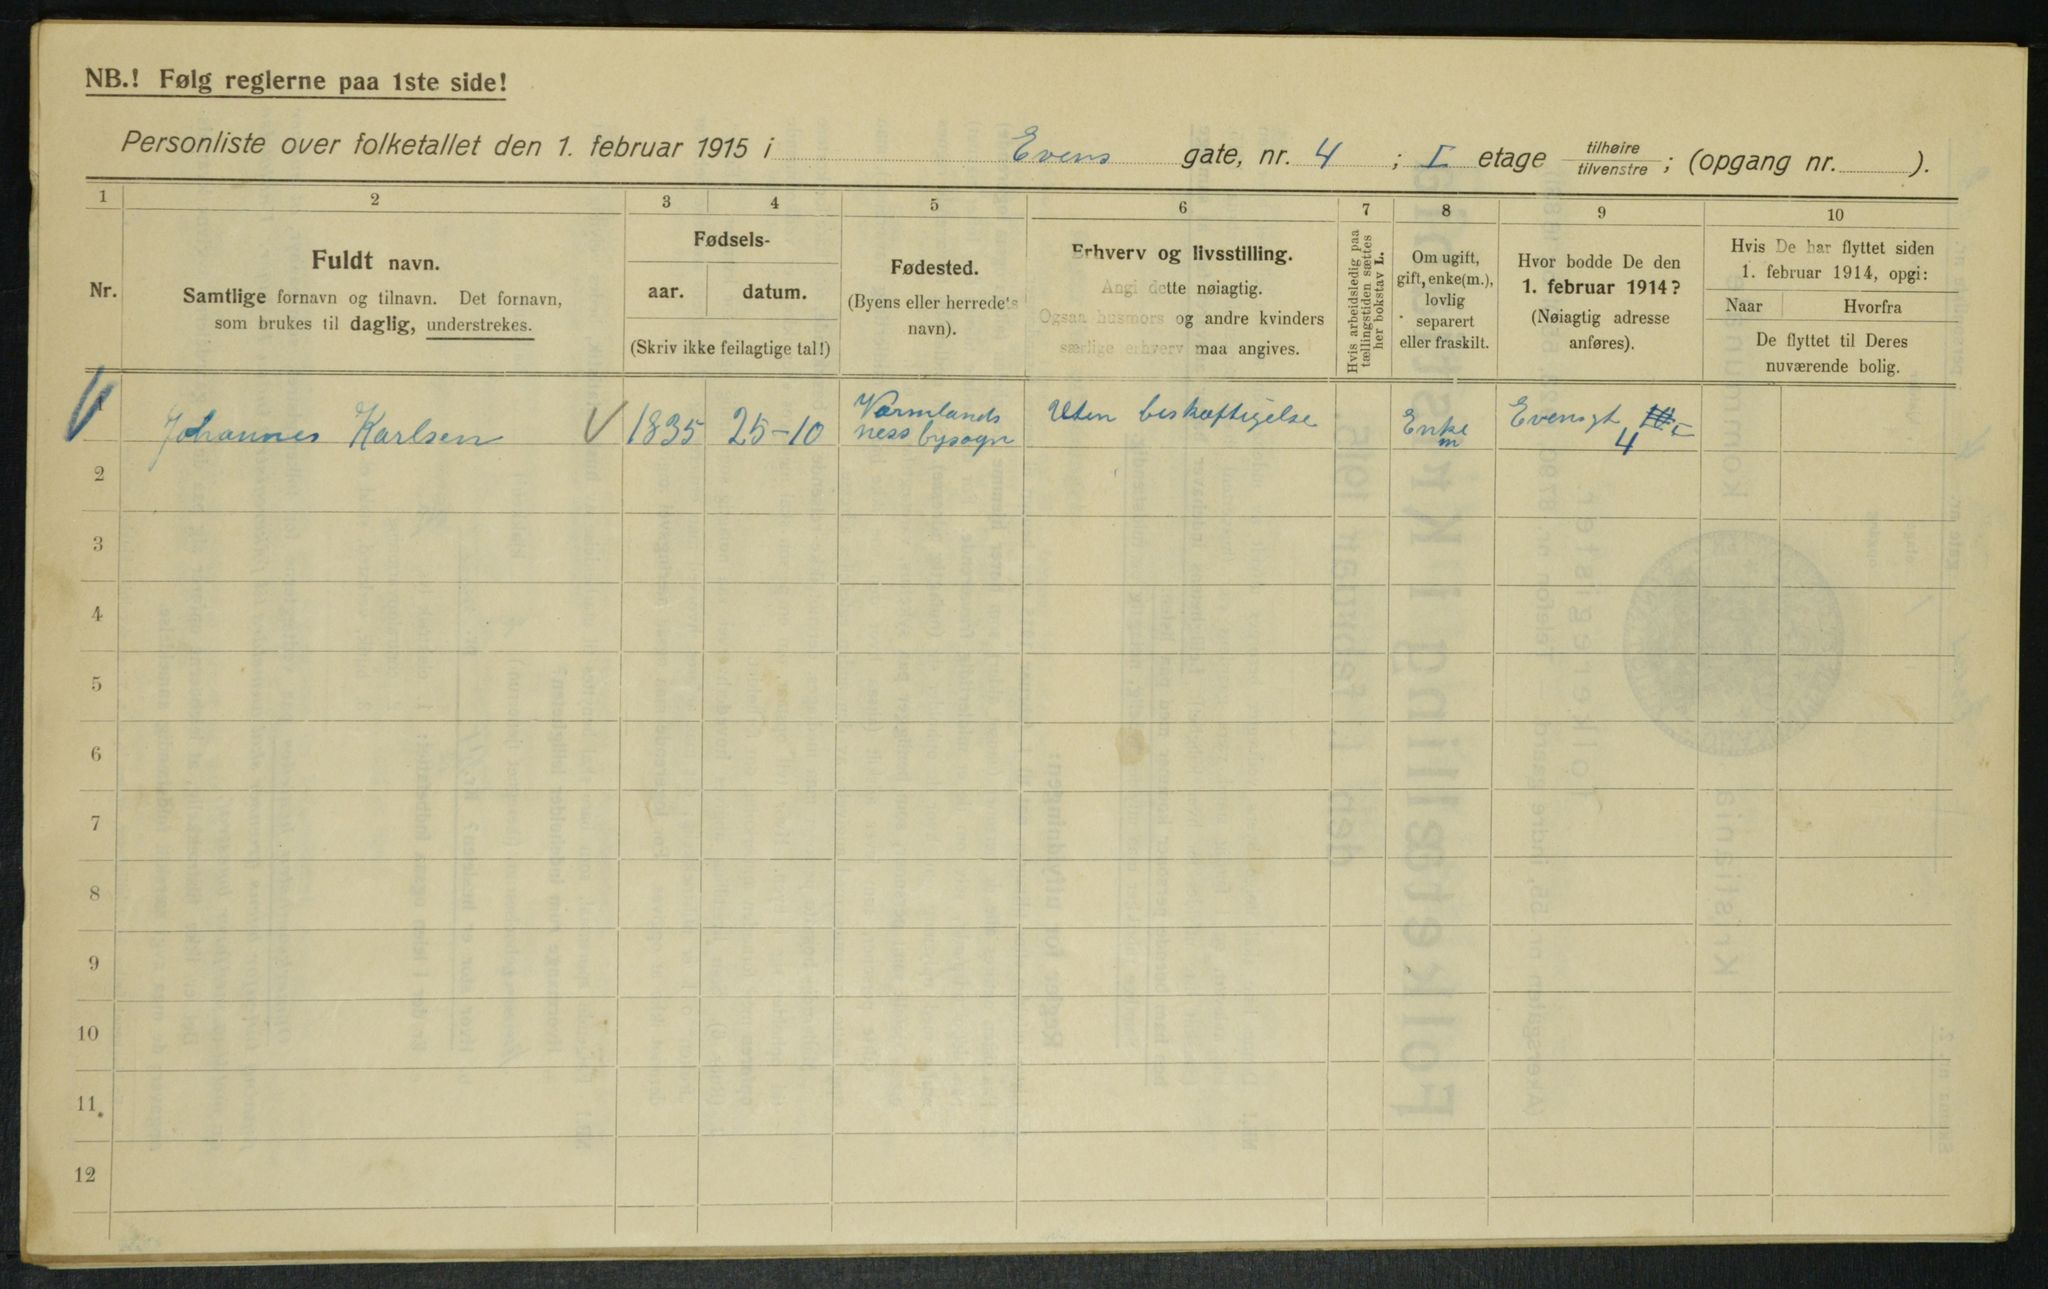 NB.! Følg reglerne paa 1ste side!
Personliste over folketallet den 1. februar 1915 i Evens gate, nr. 4 ; I etage tilhøire tilvenstre ; (opgang nr. ).
1 2 3 4 5 6 7 8 9 10
Nr.
Fuldt navn.
Samtlige fornavn og tilnavn. Det fornavn,
som brukes til daglig, understrekes.
Fødsels-
aar. datum.
(Skriv ikke feilagtige tal!)
Fødested.
(Byens eller herredets
navn).
Erhverv og livsstilling.
Angi dette nøiagtig.
Ogsaa husmors og andre kvinders
særlige erhverv maa angives.
Hvis arbeidsledig paa
tællingstiden sættes
her bokstav L.
Om ugift,
gift, enke(m.),
lovlig
separert
eller fraskilt.
Hvor bodde De den
1. februar 1914?
(Nøiagtig adresse
anføres).
Hvis De har flyttet siden
1. februar 1914, opgi:
Naar Hvorfra
De flyttet til Deres
nuværende bolig.
Johannes Karlsen 1835 25-10 Værmlands Uten beskæftigelse Enke Evensgt
ness bysogn m 4
2
3
4
5
6
7
8
9
10
11
12